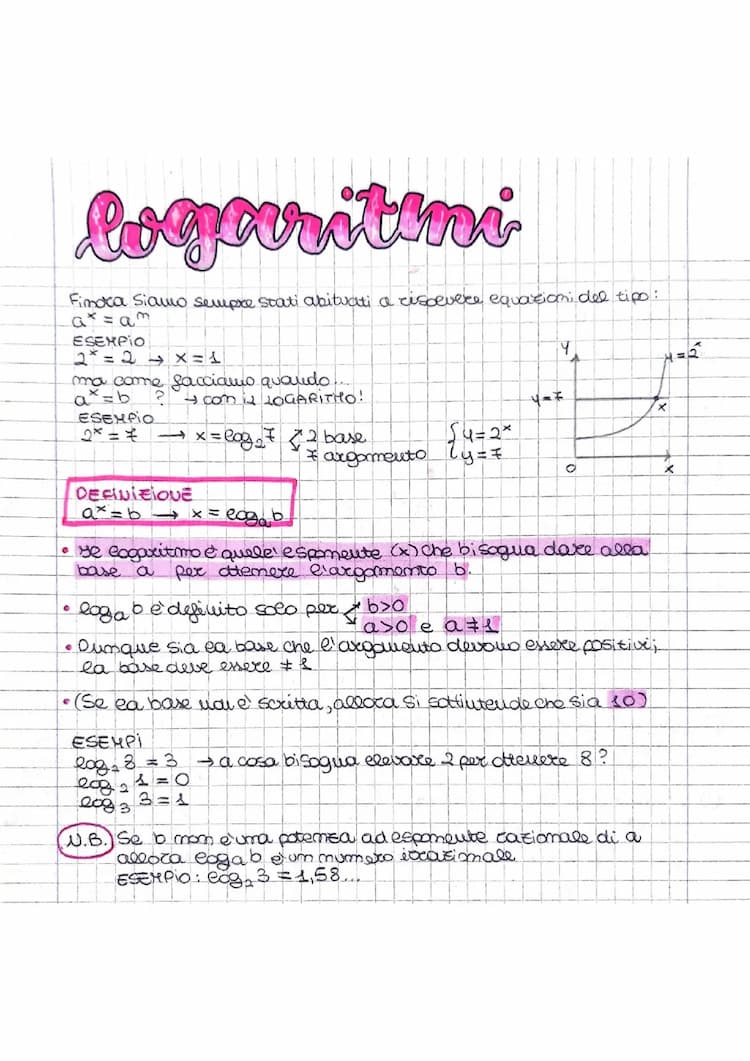 logaritmi
Finora siamo sempre stati abituati a risolvere equazioni del tipo:
aˣ = aᵐ
ESEMPIO
2ˣ = 2 → x = 1
ma come facciamo quando...
aˣ = b ? → con il LOGARITMO!
ESEMPIO
2ˣ = 7 → x = log₂7 2 base
7 argomento
{y = 2ˣ
y = 7
y
y = 2ˣ
y = 7
x
0
x
DEFINIZIONE
aˣ = b → x = logₐb
• Il logaritmo è quell'esponente (x) che bisogna dare alla
base a per ottenere l'argomento b.
• logₐb è definito solo per b>0
a>0 e a≠1
• Dunque sia la base che l'argomento devono essere positivi;
la base deve essere ≠ 1
• (Se la base non è scritta, allora si sottintende che sia 10)
ESEMPI
log₂8 = 3 → a cosa bisogna elevare 2 per ottenere 8?
log₂1 = 0
log₃3 = 1
N.B. Se b non è una potenza ad esponente razionale di a
allora logab è un numero irrazionale
ESEMPIO: log₂3 = 1,58...